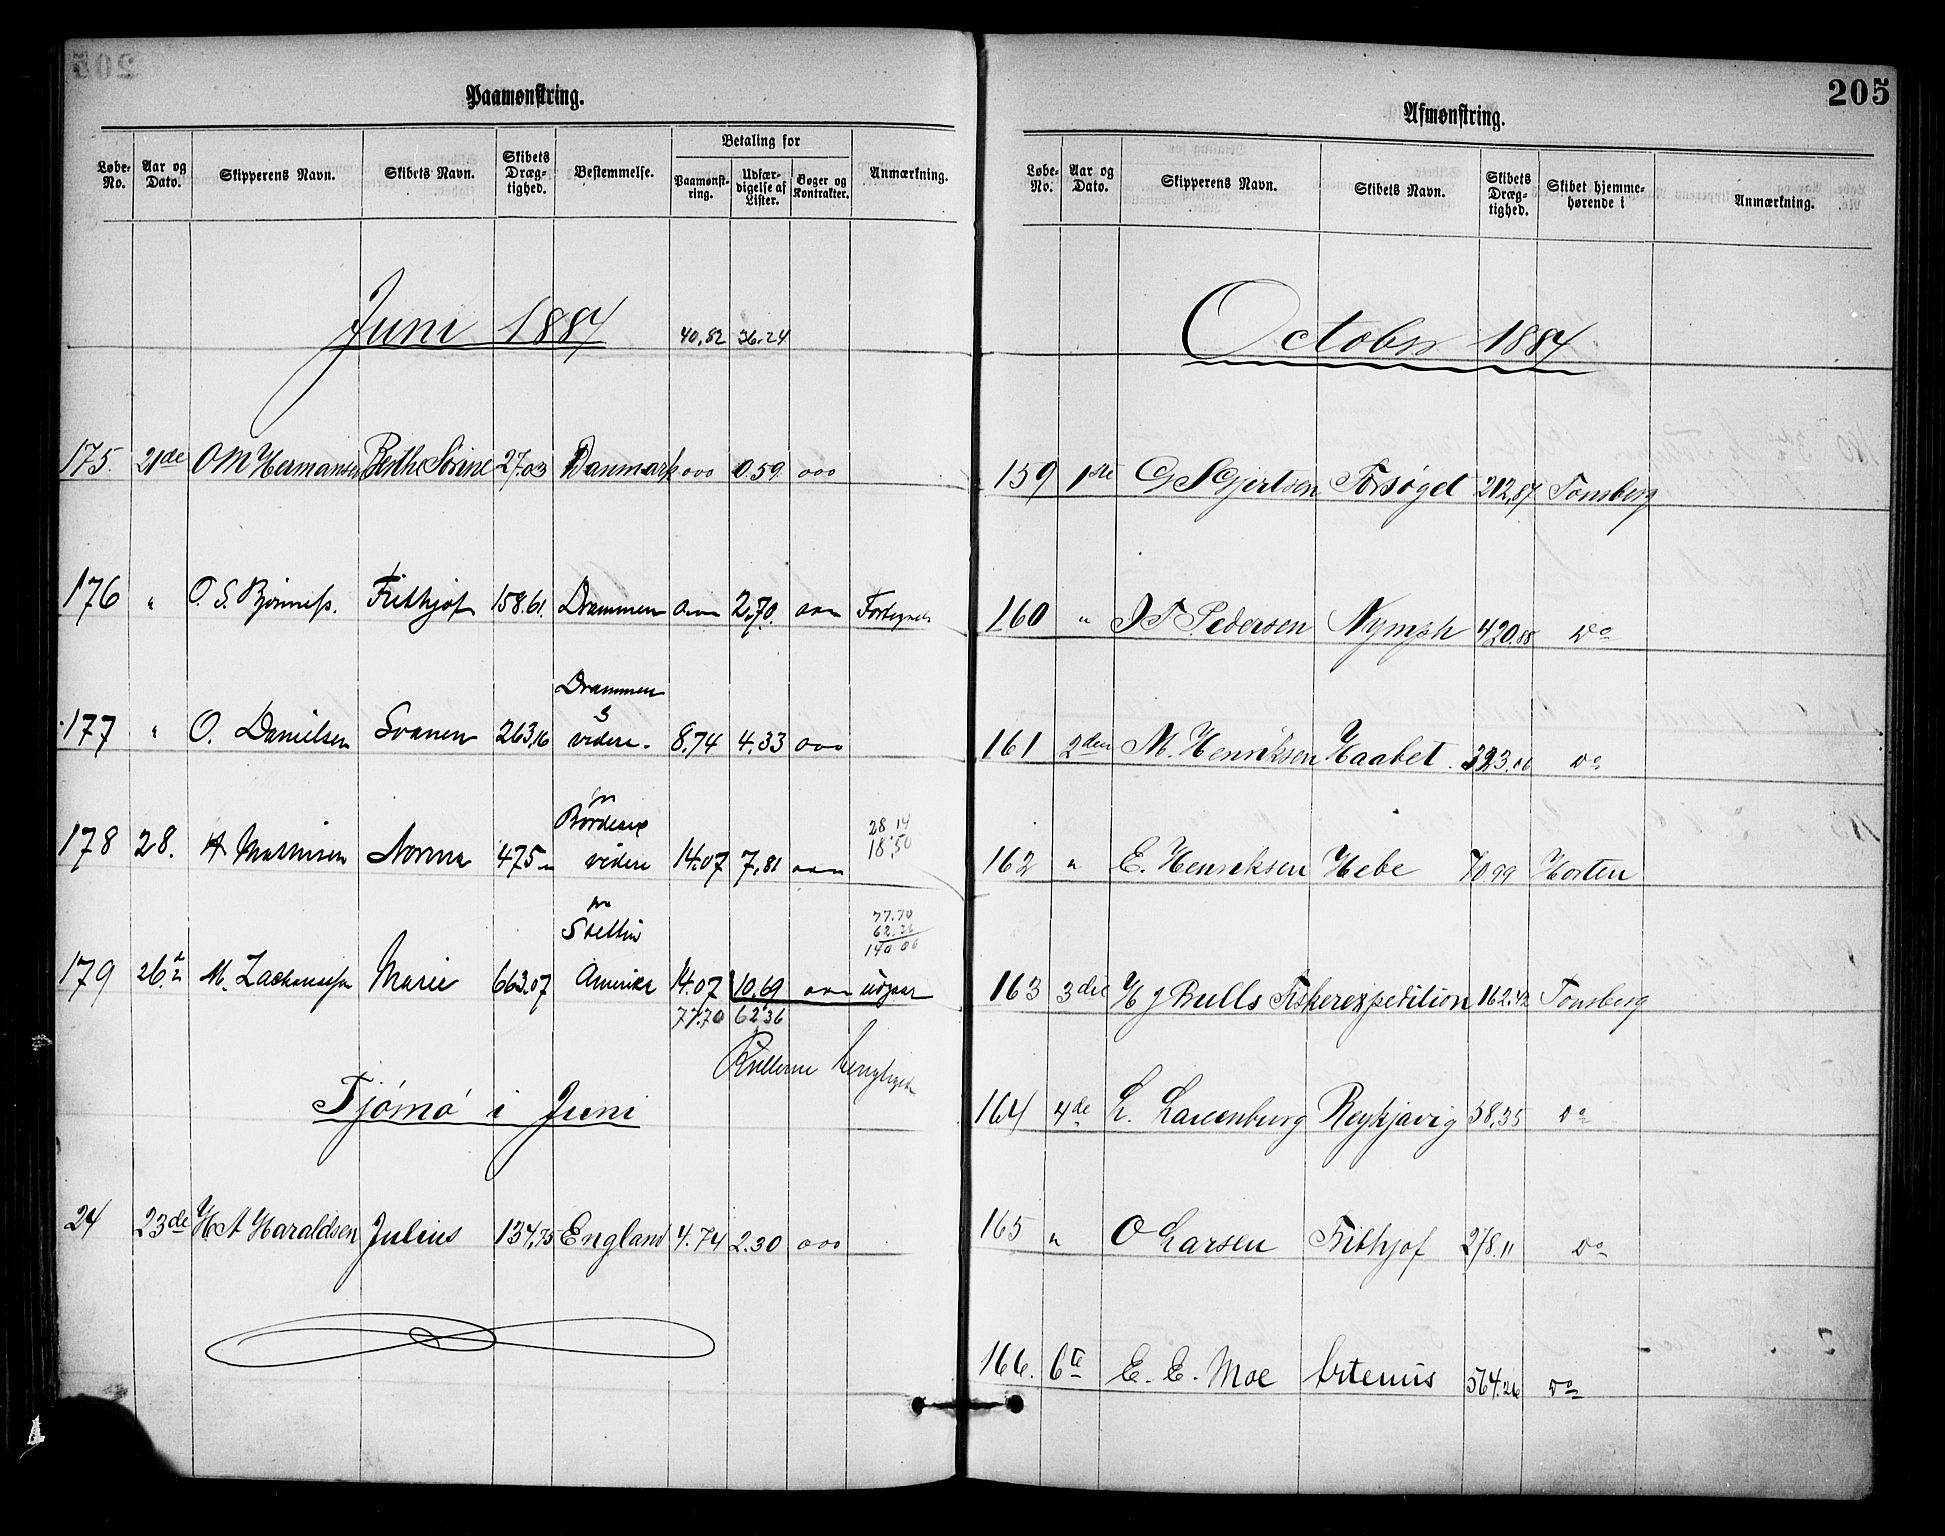 Paamønstring.
Løbe-No. Aar og Dato. Skipperens Navn. Skibets Navn. Skibets Dræg-tighed. Bestemmelse. Betaling for Paamønst-ring. Udfær-digelse af Lister. Bøger og Kontrakter. Anmærkning.
Juni 1884 40,82 36.24
175. 21de O M Hermansen Berthe Sorine 27.03 Danmark ooo 0.59 ooo
176 " O. S. Bjønness. Frithjof 158.61. Drammen ooo 2.70. ooo
Drammen
177 " O. Danielsen Svanen 263,16 & videre. 8,74 4.33 ooo
fra Bordeaux
28 14
18,50
178 28. A Mathisen Norma 475 videre 14.07 7,81 ooo
fra Stettin
77.70
62.36
140 06
179 26 M. Zachariassen Marie 663.07 Amerika 14.07 10.69 ooo udgaar
77.70 62.36
Rullerne
Tjømø i Juni
24 23de H. A Haraldsen Julius 134,75 England 4.74 2.30 ooo
205
Afmønstring.
Løbe-No. Aar og Dato. Skipperens Navn. Skibets Navn. Skibets Dræg-tighed. Skibet hjemme-hørende i Anmærkning.
October 1884
159 1ste G S Gjertsen Forsøget 212,87 Tonsberg
160 " J F Pedersen Nymph 420.88 Do
161 2den M. Henriksen Haabet. 323.06 Do
162 " E. Henriksen Hebe 70.99 Horten
163 3die H J Bulls Fiskerexpedition 162.42 Tonsberg
164 4de L. Lauenburg Reykjavig 58,35 Do
165 " O Larsen Frithjof 278.11 Do
166. 6te E. E. Moe Artemis 564.26 Do